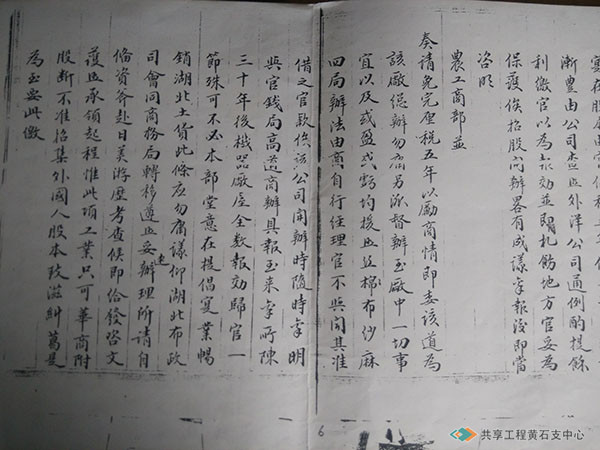 漸豐由公司查照外洋公司通例酌提餘
利繳官以為報効並賜札飭地方官妥為
保護俟招股開辦畧有成議稟報後即當
咨明
農工商部並
奏請免完厘税五年以勵商情即委該道為
該廠總辦勿庸另派督辦至廠中一切事
宜以及或盈或虧均援照絲棉布紗麻
四局辦法由商自行經理官不與聞其准
借之官款俟該公司開辦時隨時稟明
與官錢局高道商辦具報至來稟所陳
三十年後機器廠屋全數報効歸官一
節殊可不必本部堂意在提倡實業暢
銷湖北土貨此條應勿庸議仰湖北布政
司會同商務局轉移遵照妥速辦理所請自
備資斧赴日美游歷考查候即給發咨文
護照承領起程惟此項工業只可華商附
股斷不准招集外國人股本致滋糾葛是
為至要此繳
6
共享工程黄石支中心